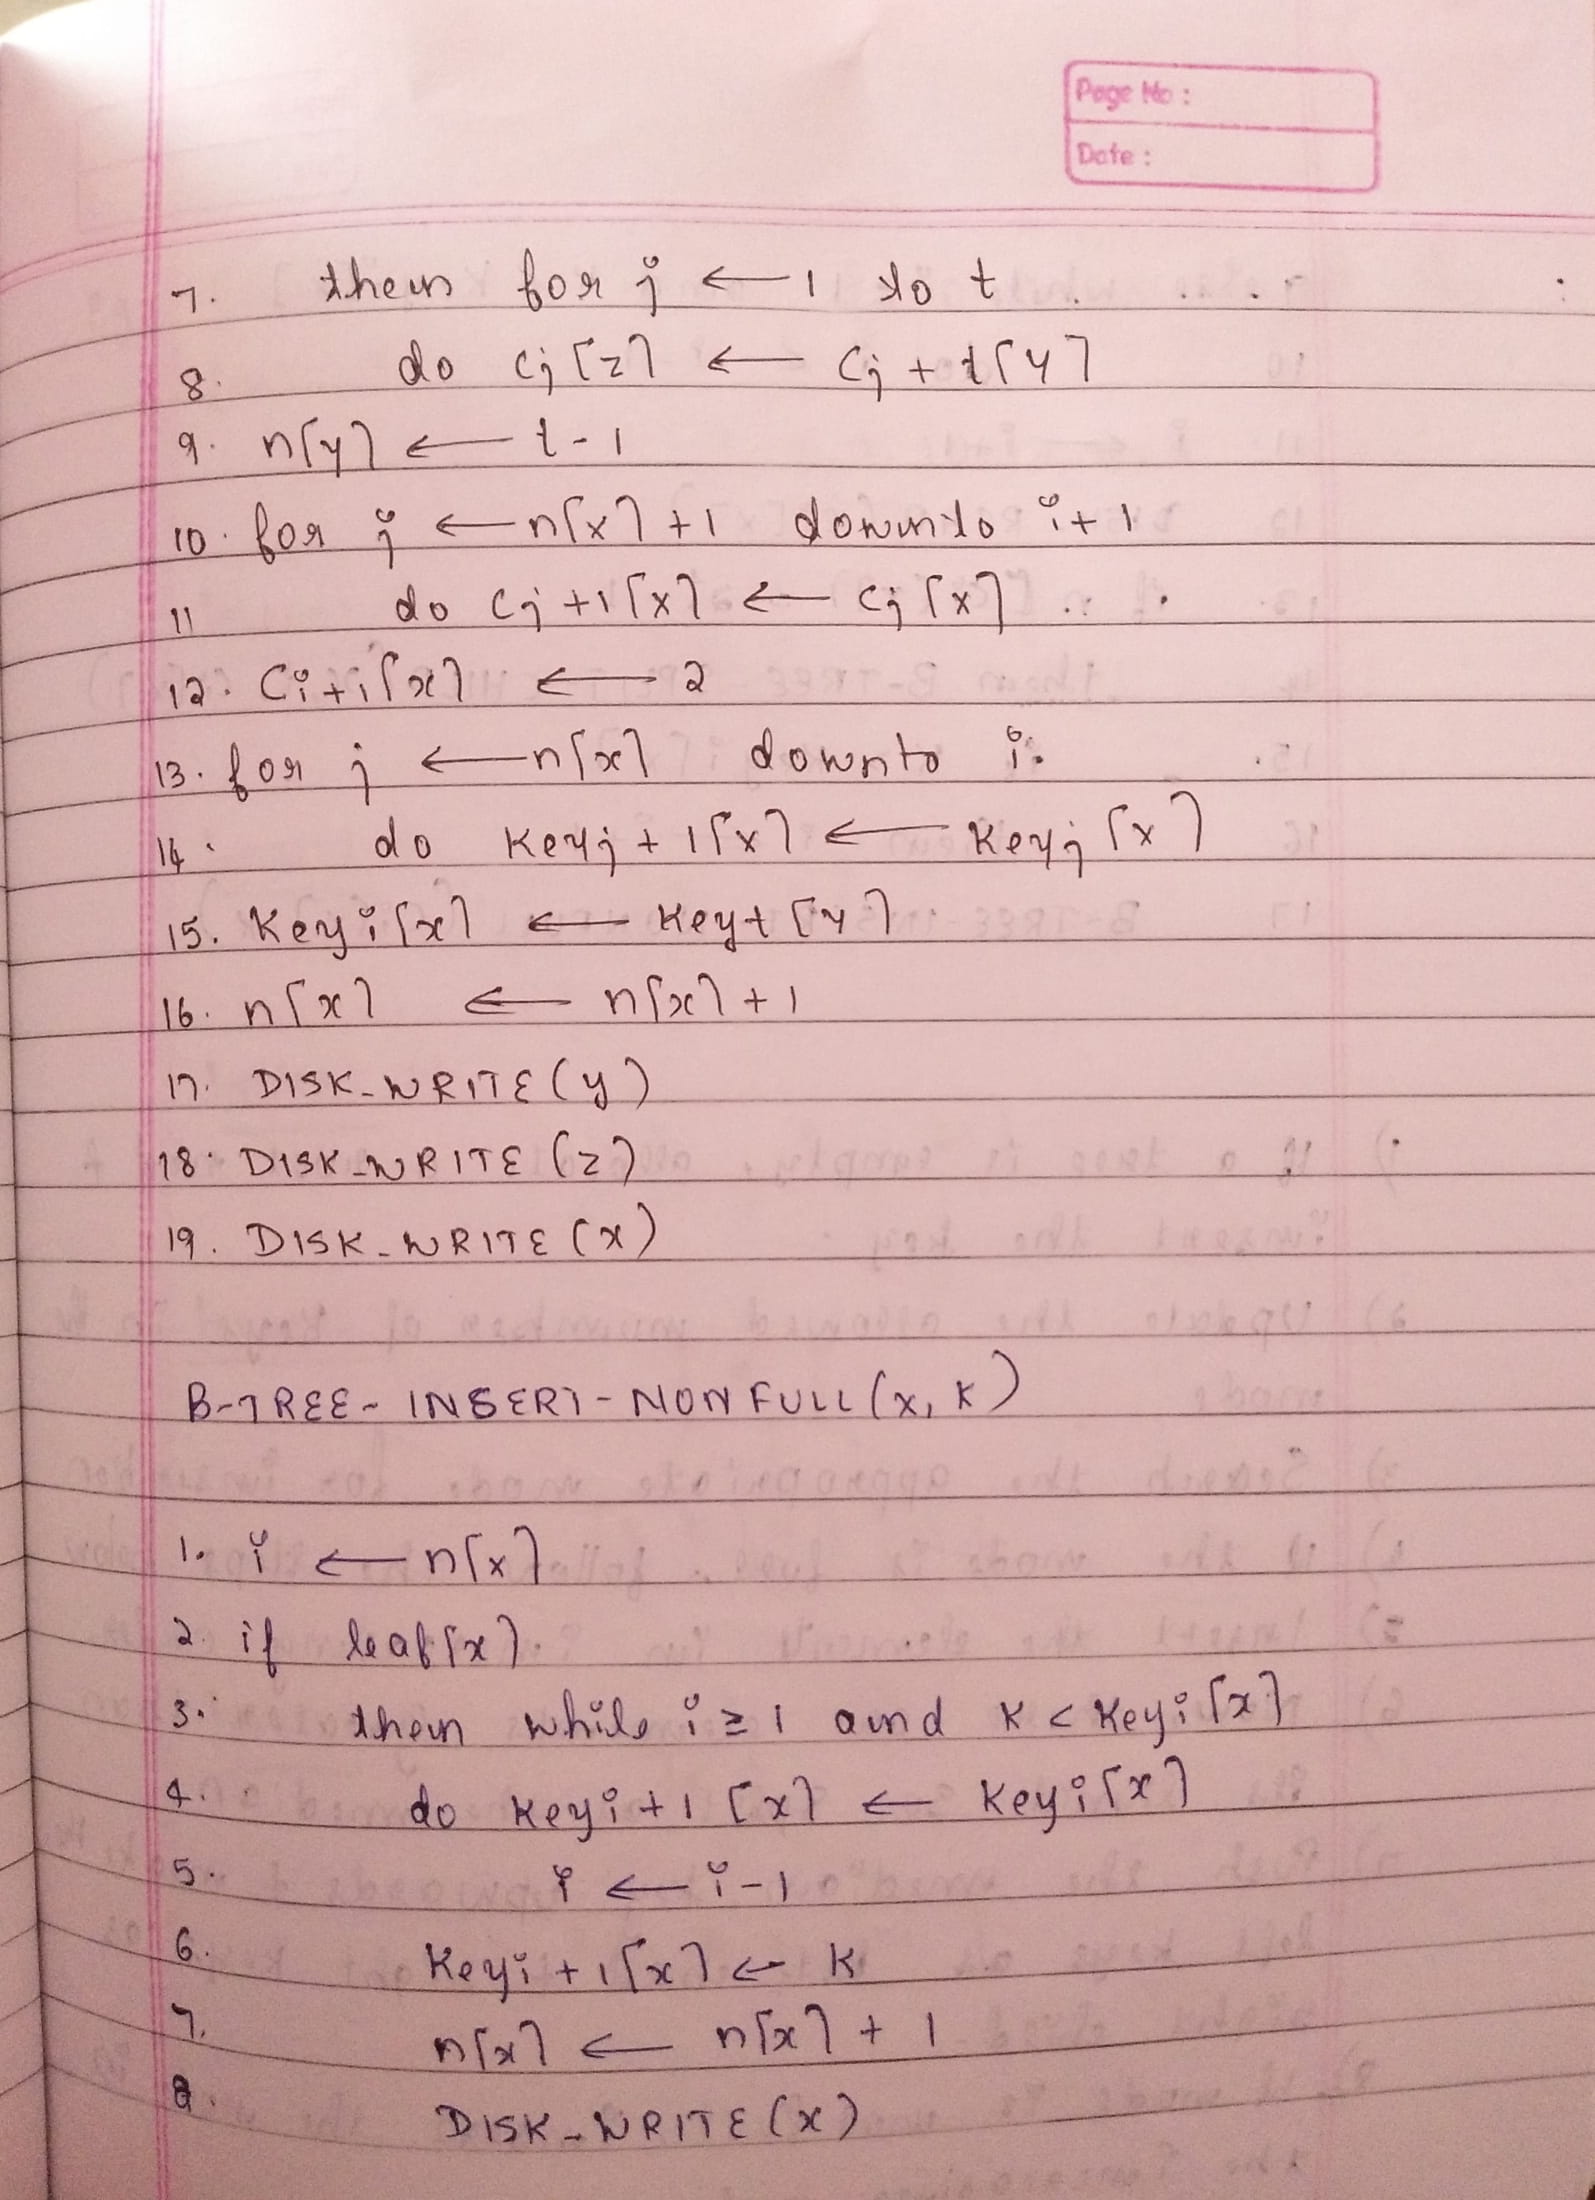 Page No :
Date :
7. then for j ← 1 to t
8. do cj [z] ← cj + t[y]
9. n[y] ← t-1
10. for j ← n[x] +1 downto i+1
11 do cj +1[x] ← cj [x]
12. Ci+i[x] ← 2
13. for j ← n[x] downto i.
14. do Keyj + 1[x] ← Keyj [x]
15. Keyi[x] ← Keyt [y]
16. n[x] ← n[x] + 1
17. DISK-WRITE (y)
18. DISK-WRITE (z)
19. DISK-WRITE (x)
B-TREE- INSERT-NONFULL(x, K)
1. i ← n[x]
2. if leaf[x]
3. then while i≥1 and K < Keyi[x]
4. do Keyi+1 [x] ← Keyi[x]
5. i ← i-1
6. Keyi + 1[x] ← K
7. n[x] ← n[x] + 1
8. DISK-WRITE(x)